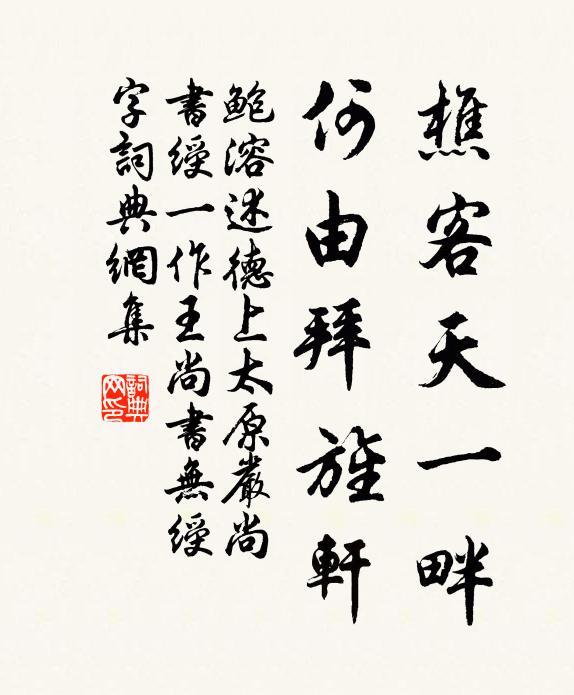 樵客天一畔
何由拜旌軒
鮑溶述德上太原嚴尚
書綬一作王尚書無綬
字詞典網集
詞典网印